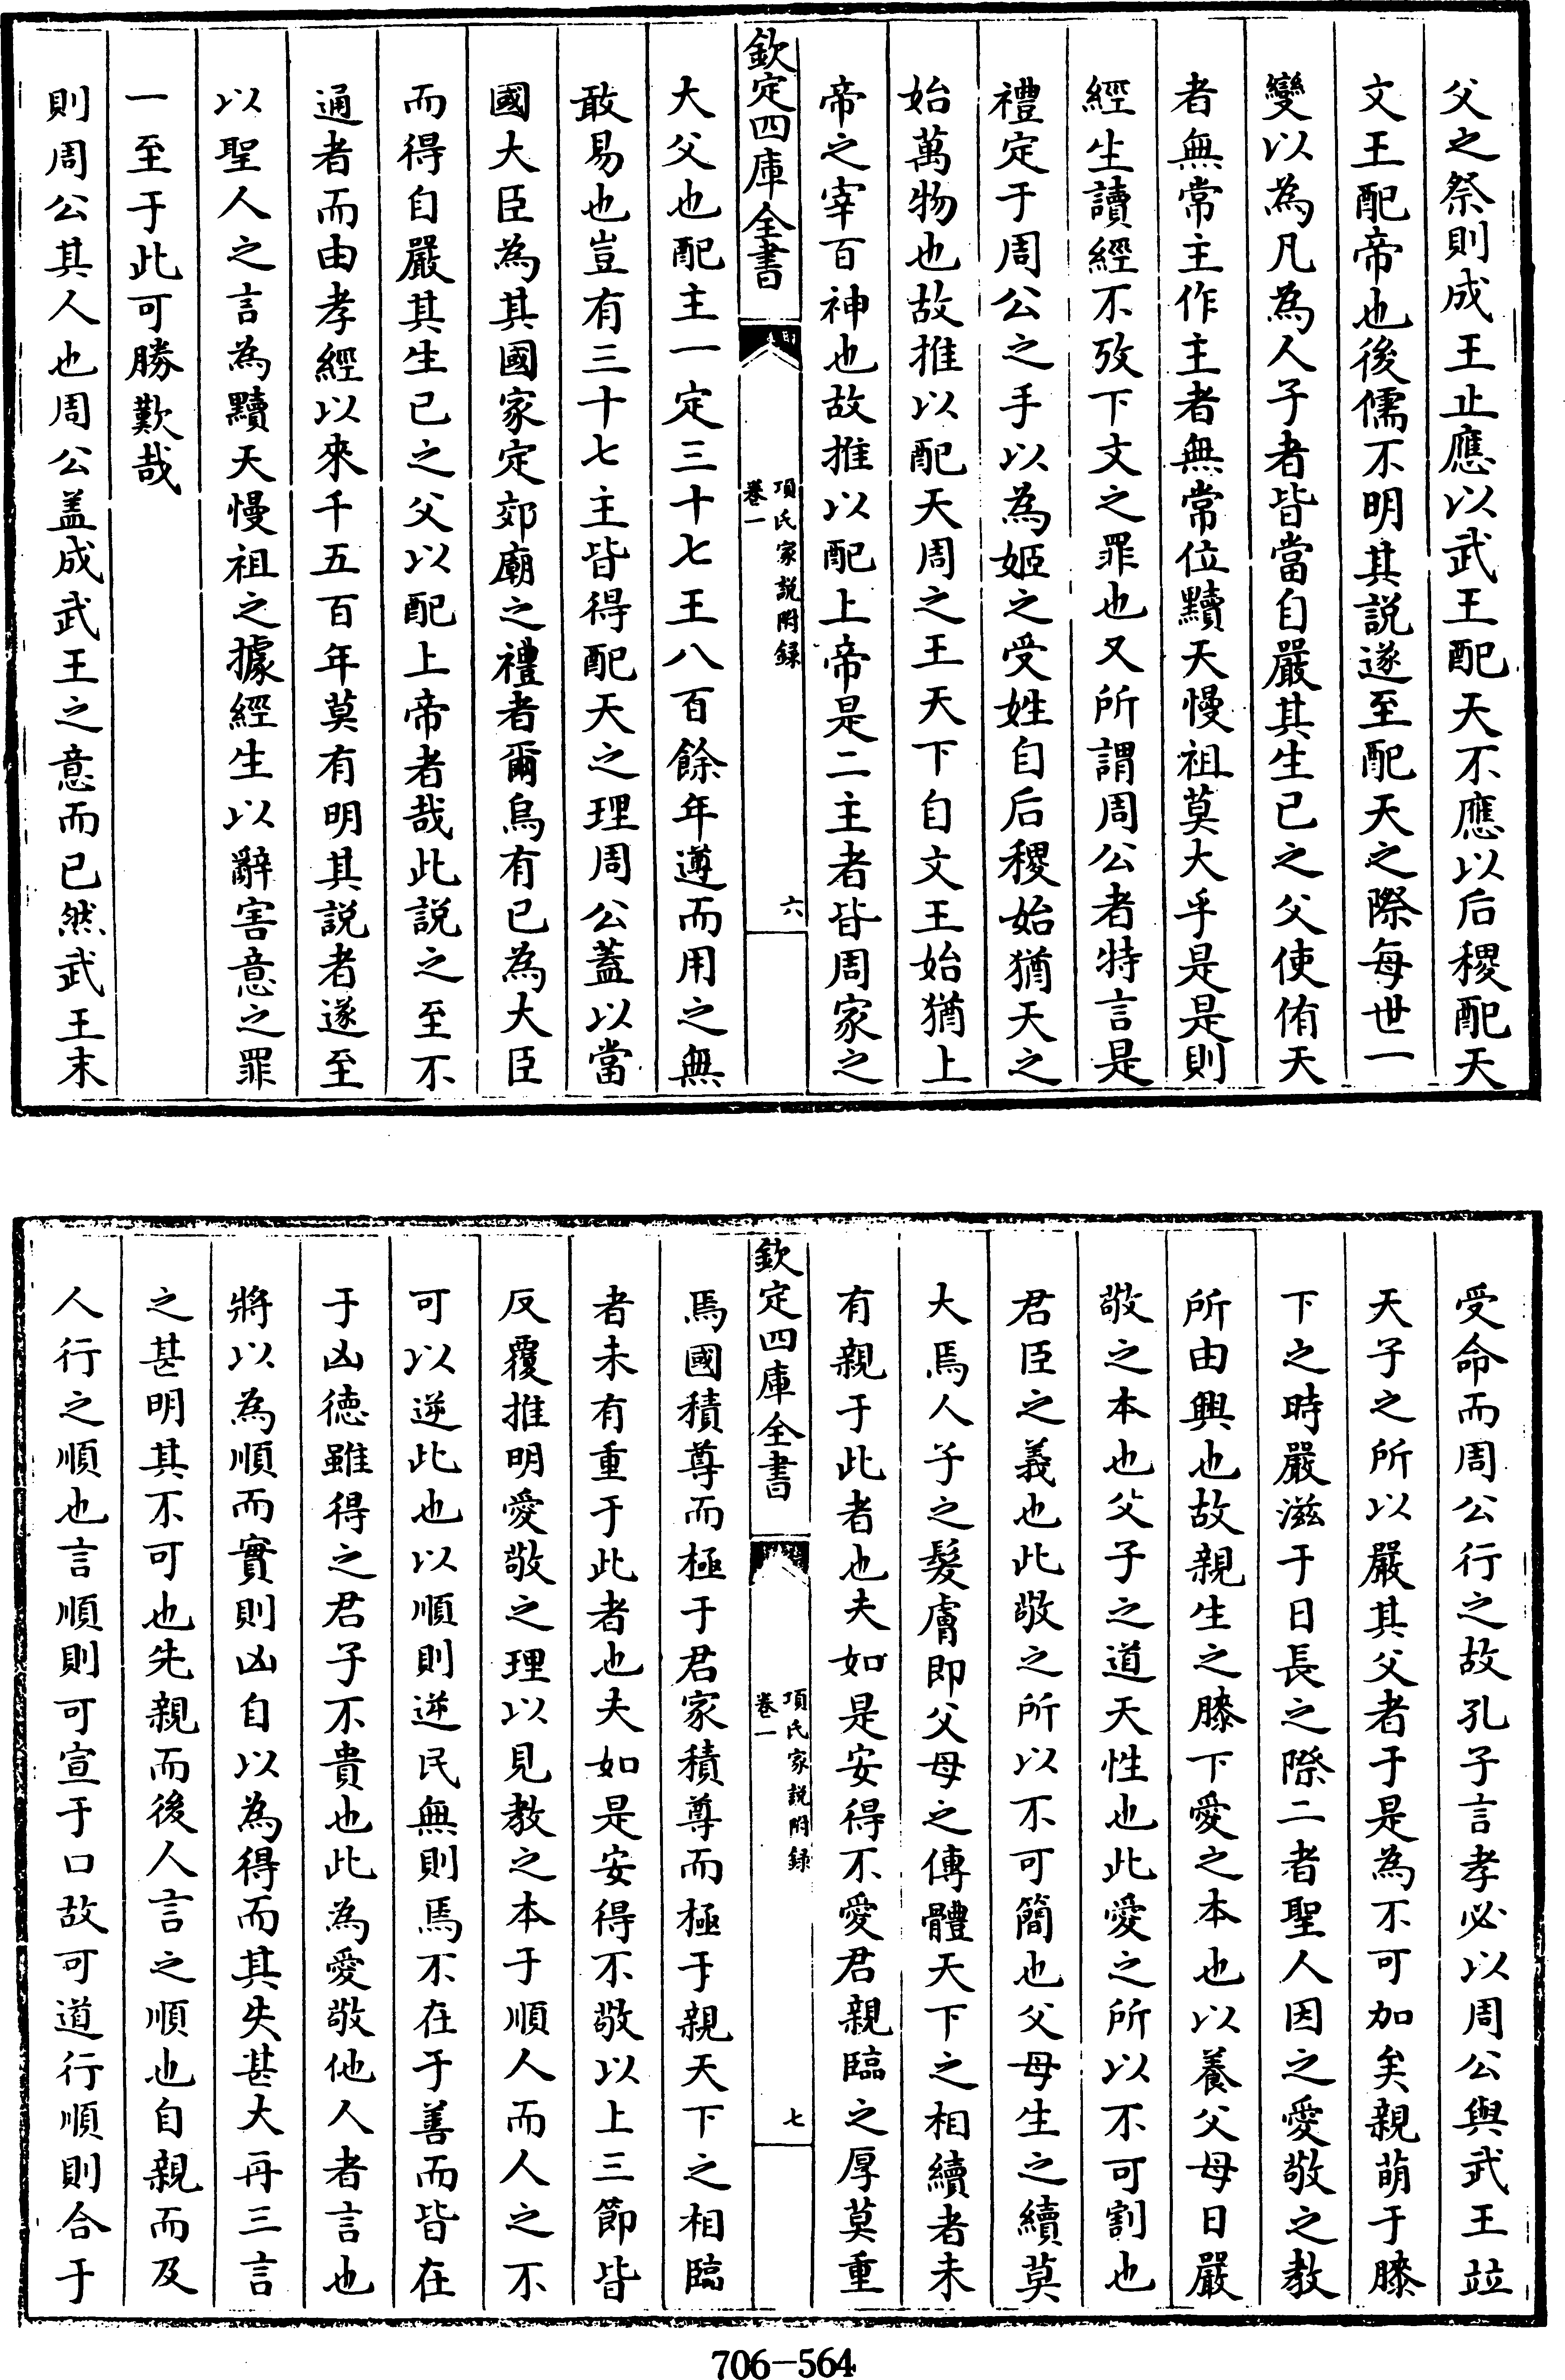 父之祭則成王止應以武王配天不應以后稷配天
文王配帝也後儒不明其説遂至配天之際每世一
變以為凡為人子者皆當自嚴其生已之父使侑天
者無常主作主者無常位黷天慢祖莫大乎是是則
經生讀經不攷下文之罪也又所謂周公者特言是
禮定于周公之手以為姬之受姓自后稷始猶天之
始萬物也故推以配天周之王天下自文王始猶上
帝之宰百神也故推以配上帝是二主者皆周家之
欽定四庫全書
項氏家説附録
卷一
六
大父也配主一定三十七王八百餘年遵而用之無
敢易也豈有三十七主皆得配天之理周公蓋以當
國大臣為其國家定郊廟之禮者爾烏有已為大臣
而得自嚴其生已之父以配上帝者哉此説之至不
通者而由孝經以來千五百年莫有明其説者遂至
以聖人之言為黷天慢祖之據經生以辭害意之罪
一至于此可勝歎哉
則周公其人也周公盖成武王之意而已然武王末
受命而周公行之故孔子言孝必以周公與武王竝
天子之所以嚴其父者于是為不可加矣親萌于膝
下之時嚴滋于日長之際二者聖人因之愛敬之教
所由興也故親生之膝下愛之本也以養父母日嚴
敬之本也父子之道天性也此愛之所以不可割也
君臣之義也此敬之所以不可簡也父母生之續莫
大焉人子之髮膚即父母之傳體天下之相續者未
有親于此者也夫如是安得不愛君親臨之厚莫重
欽定四庫全書
項氏家説附録
卷一
七
焉國積尊而極于君家積尊而極于親天下之相臨
者未有重于此者也夫如是安得不敬以上三節皆
反覆推明愛敬之理以見教之本于順人而人之不
可以逆此也以順則逆民無則焉不在于善而皆在
于凶德雖得之君子不貴也此為愛敬他人者言也
將以為順而實則凶自以為得而其失甚大再三言
之甚明其不可也先親而後人言之順也自親而及
人行之順也言順則可宣于口故可道行順則合于
706-564